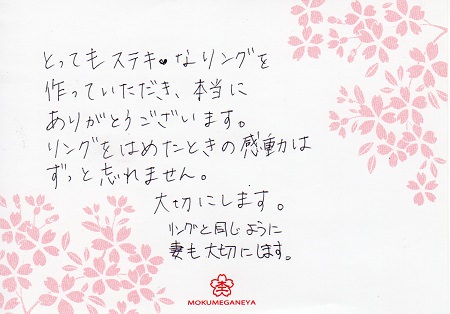 とってもステキ♥なリングを
作っていただき、本当に
ありがとうございます。
リングをはめたときの感動は
ずっと忘れません。
大切にします。
リングと同じように
妻も大切にします。
MOKUMEGANEYA